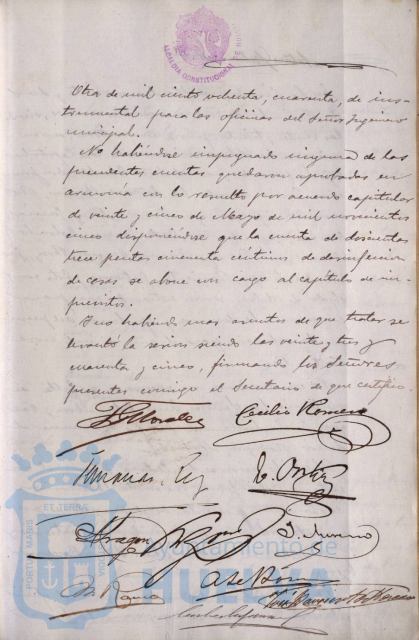 ALCALDIA CONSTITUCIONAL
Otra de mil ciento ochenta, cuarenta, de ins-
trumental para las oficinas del Señor Ingeniero
municipal.
No habiéndose impugnado ninguna de las
precedentes cuentas quedaron aprobadas en
armonía con lo resuelto por acuerdo capitular
de veinte y cinco de Mayo de mil novecientos
cinco disponiéndose que la cuenta de doscientas
trece pesetas cincuenta céntimos de desinfeccion
de casas se abone con cargo al capítulo de im-
previstos.
Y no habiendo mas asuntos de que tratar se
levantó la sesion siendo las veinte y tres y
cuarenta y cinco, firmando los Señores
presentes conmigo el Secretario de que certifico
Morales Cecilio Romero
Rey
Aragon
ET TERRÆ
PORTUS MARIS
Ayuntamiento de
HUELVA